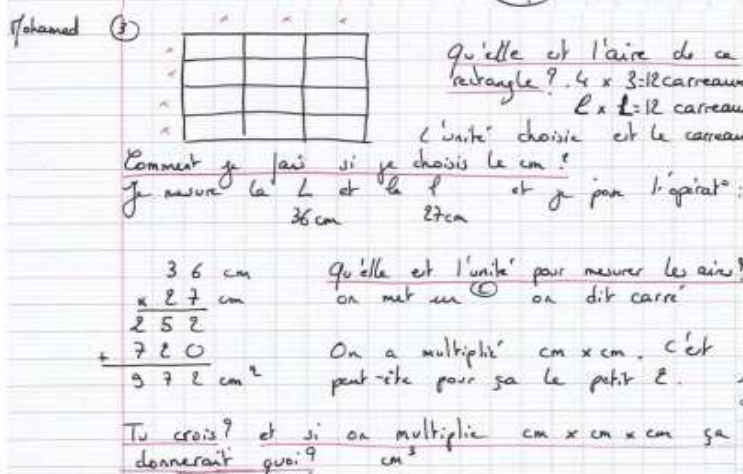 Mohamed ③
Qu'elle est l'aire de ce
rectangle ? 4 x 3=12 carreaux
l x L=12 carreau
L'unité choisie est le carreau
Comment je fais si je choisis le cm ?
Je mesure la L et la l et je pose l'opérat° :
36 cm 27 cm
36 cm
x 27 cm
252
+ 720
972 cm²
Qu'elle est l'unité pour mesurer les aires ?
on met un ② on dit carré
On a multiplié cm x cm. C'ét
peut-être pour ça le petit 2.
Tu crois ? et si on multiplie cm x cm x cm ça
donnerait quoi ? cm³